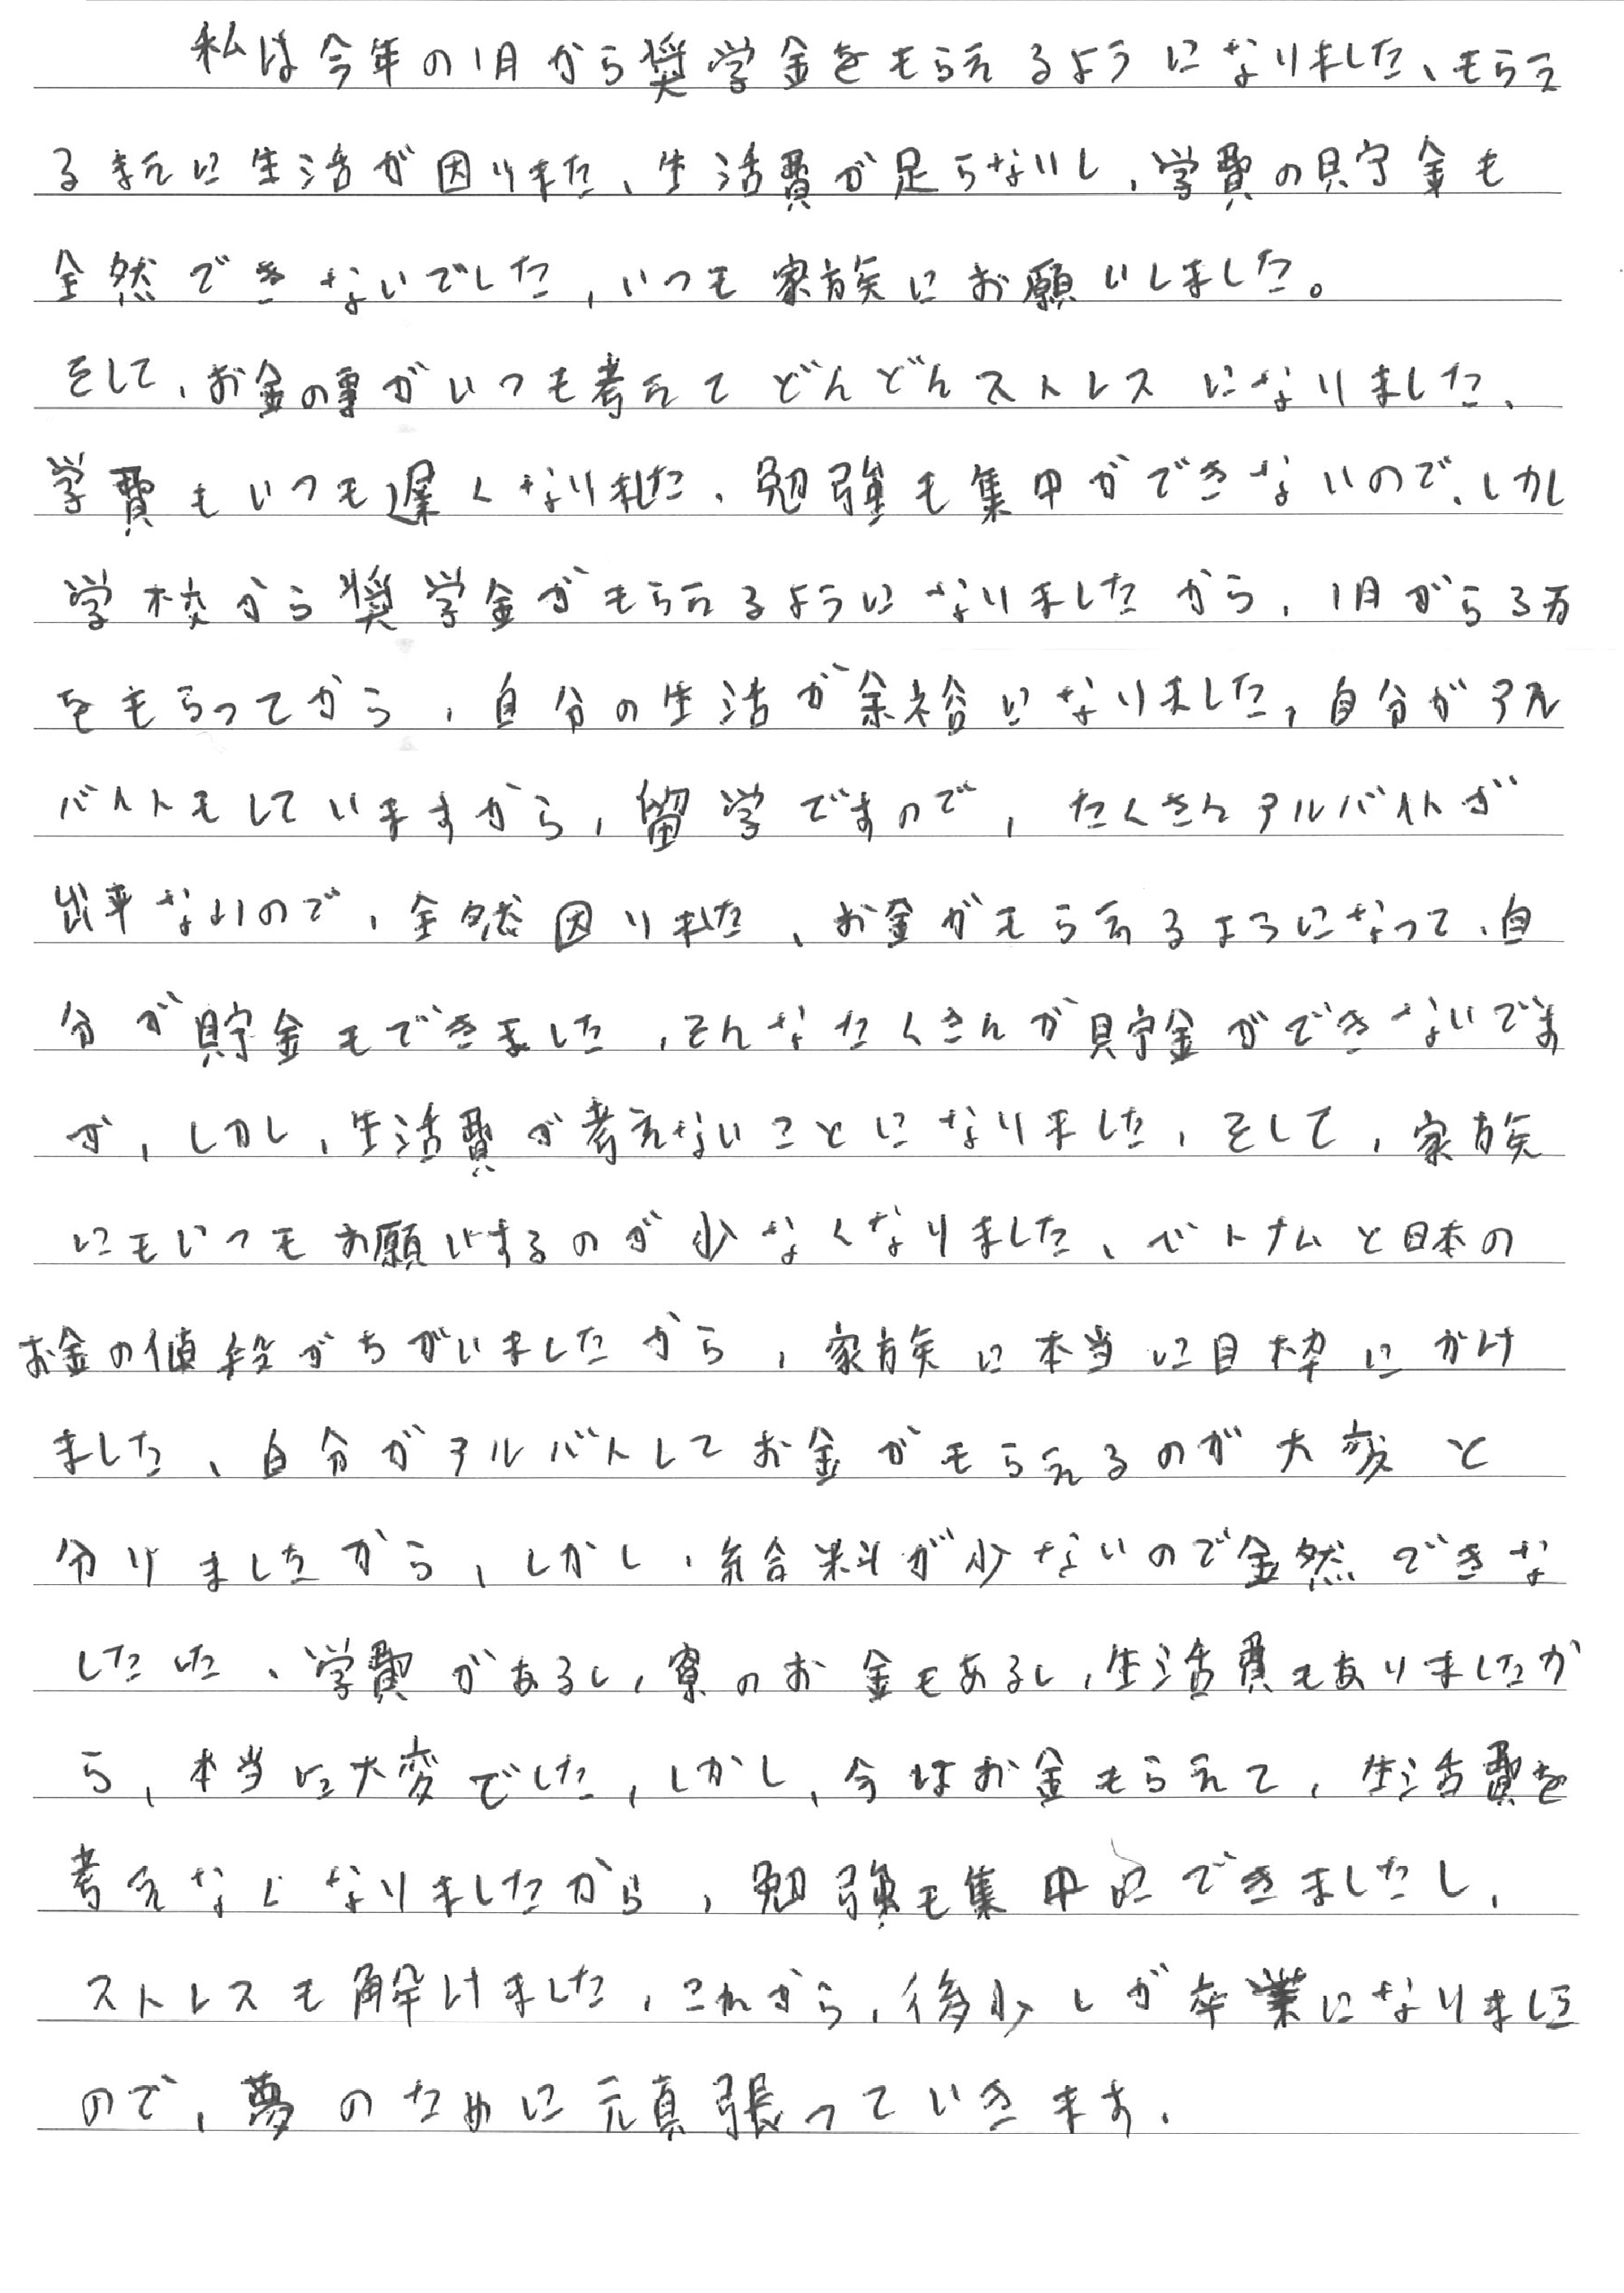 私は今年の1月から奨学金をもらえるようになりました、もらえ
るまえに生活が因りました、生活費が足らないし、学費の貯金も
全然できないでした、いつも家族にお願いしました。
そして、お金の事がいつも考えてどんどんストレスになりました、
学費もいつも遅くなりました、勉強も集中ができないので、しかし
学校から奨学金がもらえるようになりましたから、1月がら3万
をもらってから、自分の生活が余裕になりました、自分がアル
バイトもしていますから、留学ですので、たくさんアルバイトが
出来ないので、全然因りました、お金がもらえるようになって、自
分が貯金もできました、そんなたくさんが貯金ができないです
が、しかし、生活費が考えないことになりました、そして、家族
にもいつもお願いするのが少なくなりました、ベトナムと日本の
お金の値段がちがいましたから、家族に本当に目枠にかけ
ました、自分がアルバイトしてお金がもらえるのが大変と
分りましたから、しかし、給料が少ないので金然できな
したった、学費があるし、寮のお金もあるし、生活費もありましたか
ら、本当に大変でした、しかし、今はお金もらえて、生活費を
考えなくなりましたから、勉強も集中にできましたし、
ストレスも解けました、これから、後少しが卒業になりまし
ので、夢のために元真張っていきます、